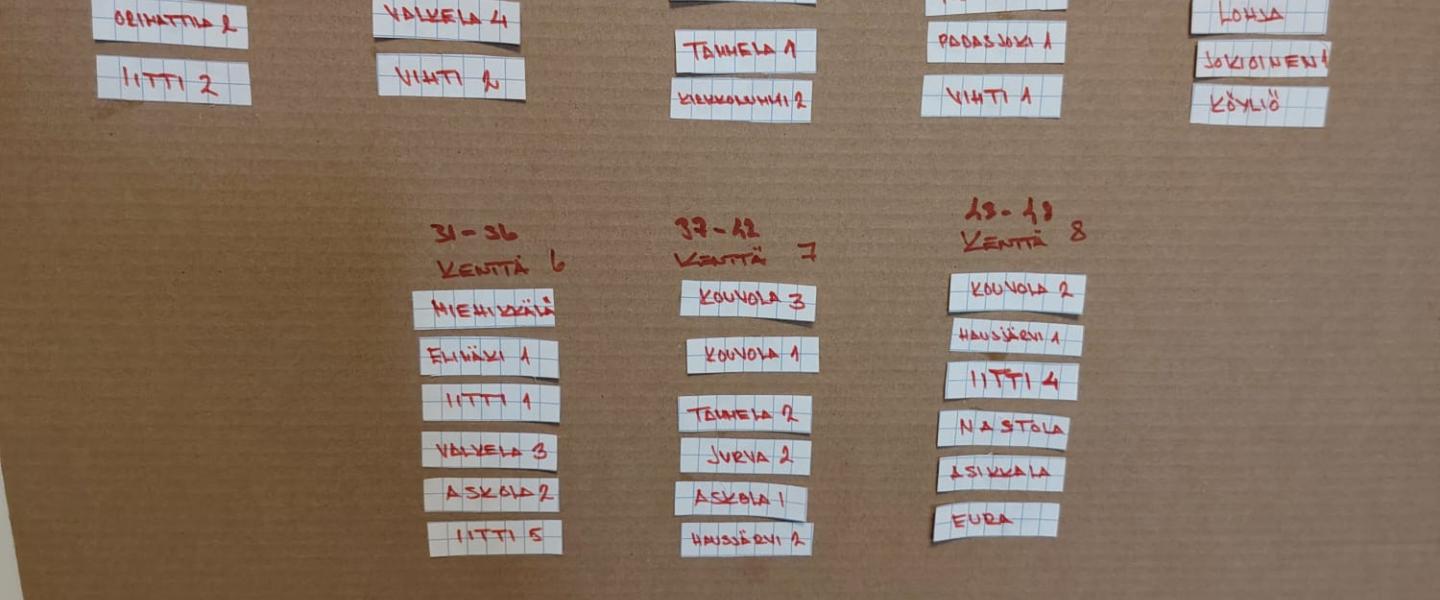 ORIMATTILA 2
IITTI 2
VALKELA 4
VIHTI 2
TAMMELA 1
KIRKKONUMMI 2
PADASJOKI 1
VIHTI 1
LOHJA
JOKIOINEN 1
KÖYLIÖ
31-36
KENTTÄ 6
MIEHIKKÄLÄ
ELIMÄKI 1
IITTI 1
VALKELA 3
ASKOLA 2
IITTI 5
37-42
KENTTÄ 7
KOUVOLA 3
KOUVOLA 1
TAMMELA 2
JURVA 2
ASKOLA 1
HAUSJÄRVI 2
43-48
KENTTÄ 8
KOUVOLA 2
HAUSJÄRVI 1
IITTI 4
NASTOLA
ASIKKALA
EURA